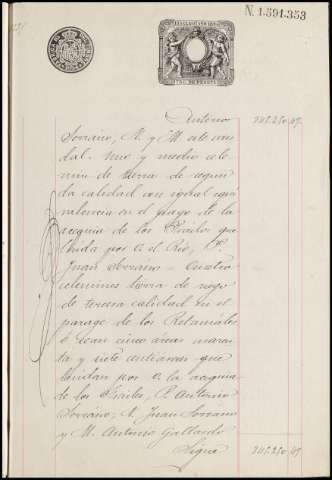 N. 1.591.353
Antonio 241.250,49.
Soriano, N. y M. este cau-
dal. Uno y medio cele-
mín de tierra de segun-
da calidad con igual equi-
valencia en el pago de la
acequia de los Frailes que
linda por O. el Rio, P.
Juan Soriano = Cuatro
celemines tierra de riego
de tercera calidad en el
parage de los Retamales
ó sean cinco áreas noven-
ta y siete centiáreas que
lindan por O. la acequia
de los Frailes, P. Antonio
Soriano; N. Juan Soriano
y M. Antonio Gallardo
Sigue 241.250,49